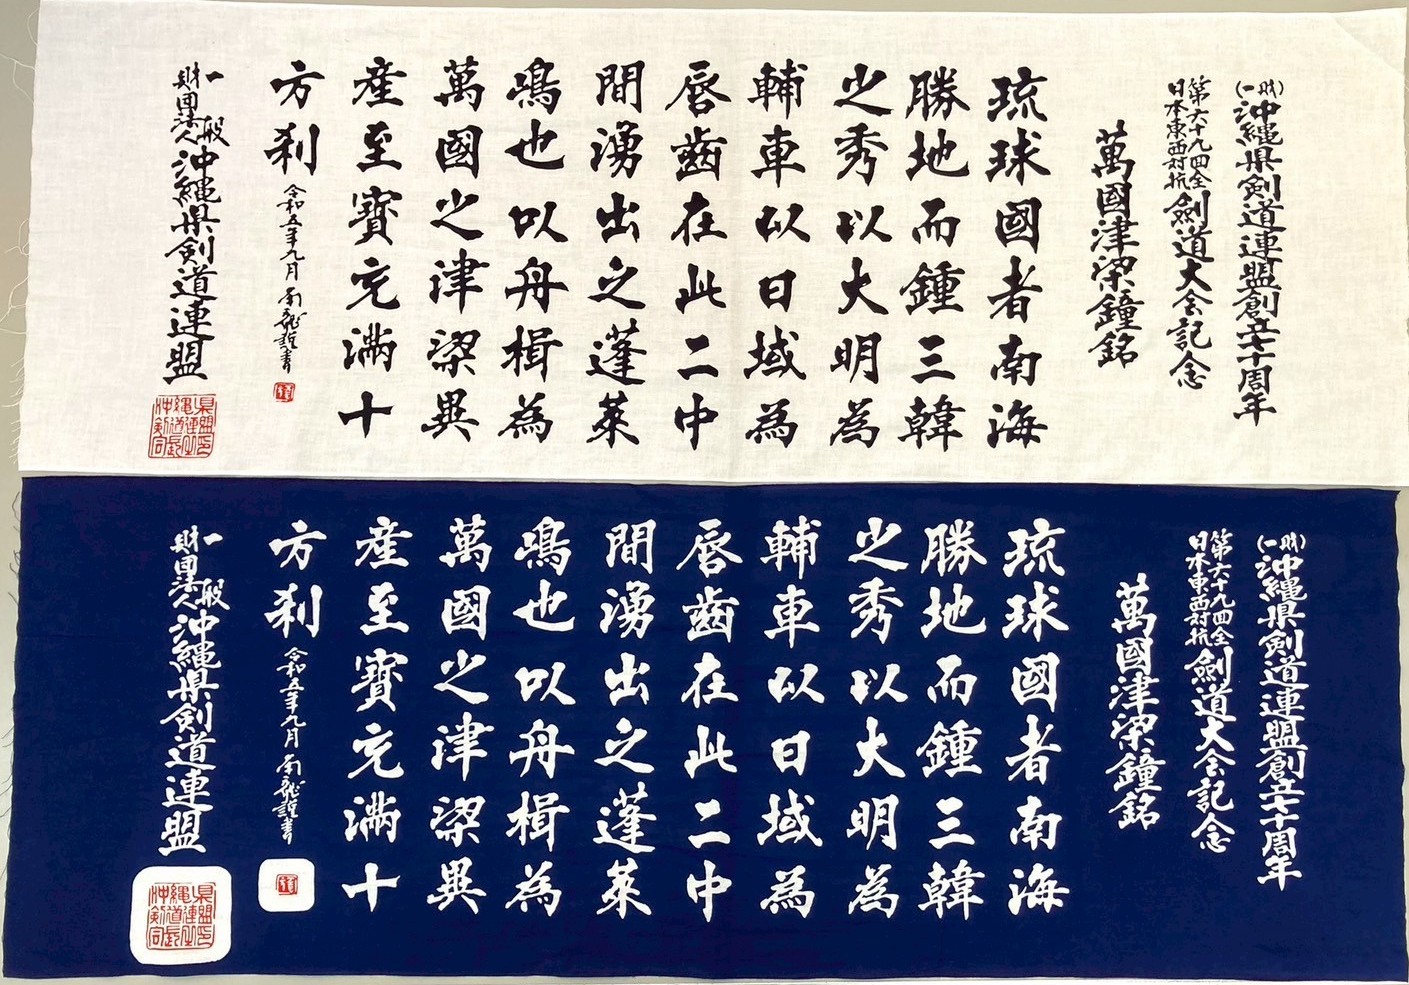 (一財)沖縄県剣道連盟創立七十周年
第六十九回全日本東西対抗劍道大会記念
萬國津梁鐘銘
琉球國者南海
勝地而鍾三韓
之秀以大明為
輔車以日域為
脣齒在此二中
間湧出之蓬萊
嶋也以舟楫為
萬國之津梁異
産至寶充滿十
方刹 令和五年九月 南龍謹書
一般財団法人沖縄県剣道連盟
(一財)沖縄県剣道連盟創立七十周年
第六十九回全日本東西対抗劍道大会記念
萬國津梁鐘銘
琉球國者南海
勝地而鍾三韓
之秀以大明為
輔車以日域為
脣齒在此二中
間湧出之蓬萊
嶋也以舟楫為
萬國之津梁異
産至寶充滿十
方刹 令和五年九月 南龍謹書
一般財団法人沖縄県剣道連盟